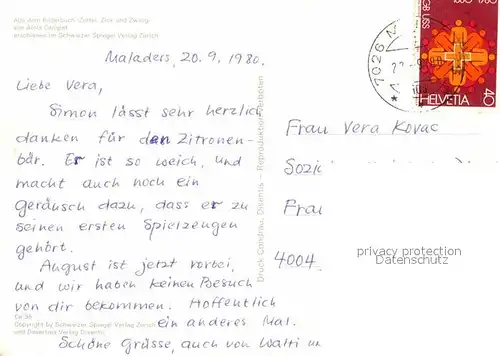 Aus dem Bilderbuch «Zottel, Zick und Zwerg»
von Alois Carigiet
erschienen im Schweizer Spiegel Verlag Zürich
Maladers, 20.9.1980.
Liebe Vera,
Simon lässt sehr herzlich
danken für den Zitronen-
bär. Er ist so weich, und
macht auch noch ein
Geräusch dazu, dass er zu
seinen ersten Spielzeugen
gehört.
August ist jetzt vorbei,
und wir haben keinen Besuch
von dir bekommen. Hoffentlich
ein anderes Mal.
Schöne Grüsse, auch von Walti u
Copyright by Schweizer Spiegel Verlag Zürich
und Desertina Verlag Disentis
Druck Condrau, Disentis – Reproduktion verboten
7026 M
SGB USS
HELVETIA 40
Frau Vera Kovac
Sozi
Frau
4004
privacy protection
Datenschutz